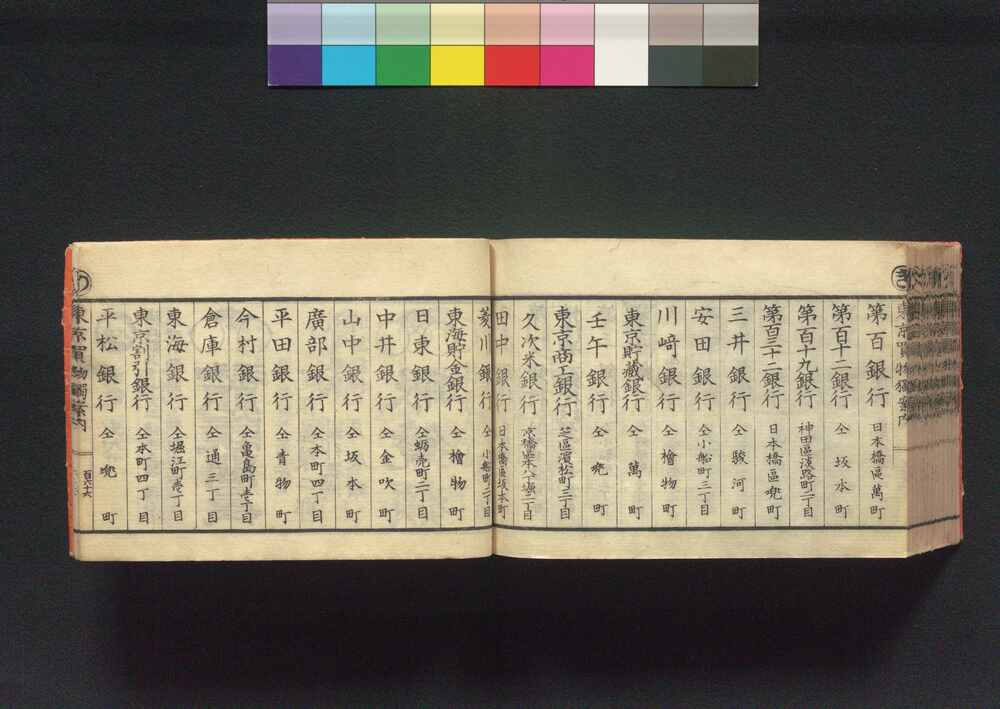 き
東京買物獨案内
第百銀行 日本橋區萬町
第百十二銀行 仝坂本町
第百十九銀行 神田區淡路町二丁目
第百三十二銀行 日本橋區兜町
三井銀行 仝駿河町
安田銀行 仝小舩町三丁目
川﨑銀行 仝檜物町
東京貯藏銀行 仝萬町
壬午銀行 仝兜町
東京商工銀行 芝區濱松町三丁目
久次米銀行 京橋區本八丁堀二丁目
田中銀行 日本橋區坂本町
菱川銀行 仝小舩町二丁目
東海貯金銀行 仝檜物町
日東銀行 仝蛎売町二丁目
中井銀行 仝金吹町
山中銀行 仝坂本町
廣部銀行 仝本町四丁目
平田銀行 仝青物町
今村銀行 仝亀島町壱丁目
倉庫銀行 仝通三丁目
東海銀行 仝堀江町壱丁目
東京割引銀行 仝本町四丁目
平松銀行 仝兜町
東京買物獨案内
百六十六